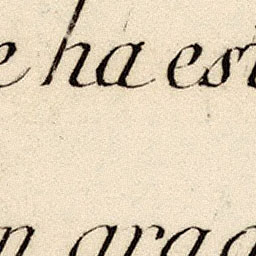 e ha est
n grad